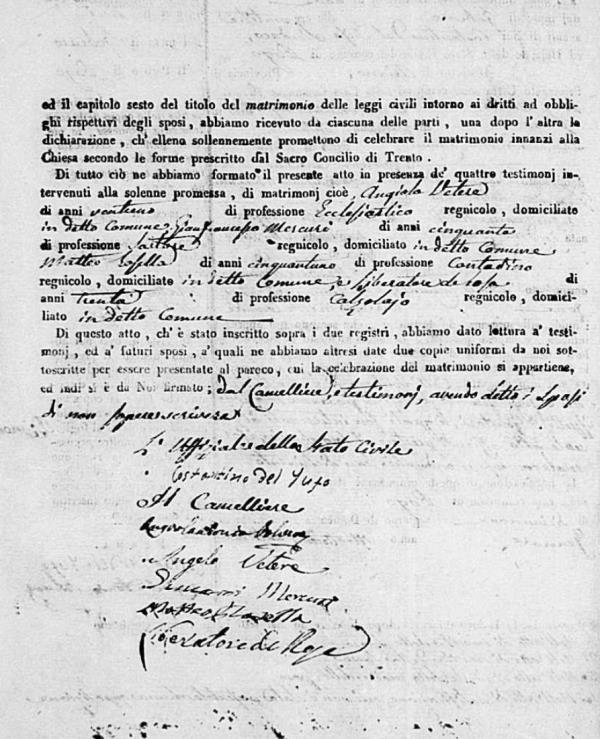 ed il capitolo sesto del titolo del matrimonio delle leggi civili intorno ai dritti ad obbli-
ghi rispettivi degli sposi, abbiamo ricevuto da ciascuna delle parti, una dopo l'altra la
dichiarazione, ch'elleno sollennemente promettono di celebrare il matrimonio innanzi alla
Chiesa secondo le forme prescritto dal Sacro Concilio di Trento.
Di tutto ciò ne abbiamo formato il presente atto in presenza de' quattro testimonj in-
tervenuti alla solenne promessa, di matrimonj cioè, Angiolo Vetere
di anni ventuno di professione Ecclesiastico regnicolo, domiciliato
in detto Comune, Gianfrancesco Mercuri di anni cinquanta
di professione Sartore regnicolo, domiciliato in detto Comune
Matteo di anni cinquantuno di professione Contadino
regnicolo, domiciliato in detto Comune, e Liberatore de Rosa di
anni trenta di professione Calzolajo regnicolo, domici-
liato in detto Comune
Di questo atto, ch'è stato inscritto sopra i due registri, abbiamo dato lettura a' testi-
monj, ed a' futuri sposi, a' quali ne abbiamo altresi date due copie uniformi da noi sot-
toscritte per essere presentate al paroco, cui la celebrazione del matrimonio si appartiene,
ed indi si è da Noi firmato; dal Cancelliere, e testimonj, avendo detto i Sposi
di non sapere scrivere
L'Uffiziale dello Stato Civile
Costantino del
Il Cancelliere
Angelo Vetere
Mercuri
Matteo
Liberatore de Rosa